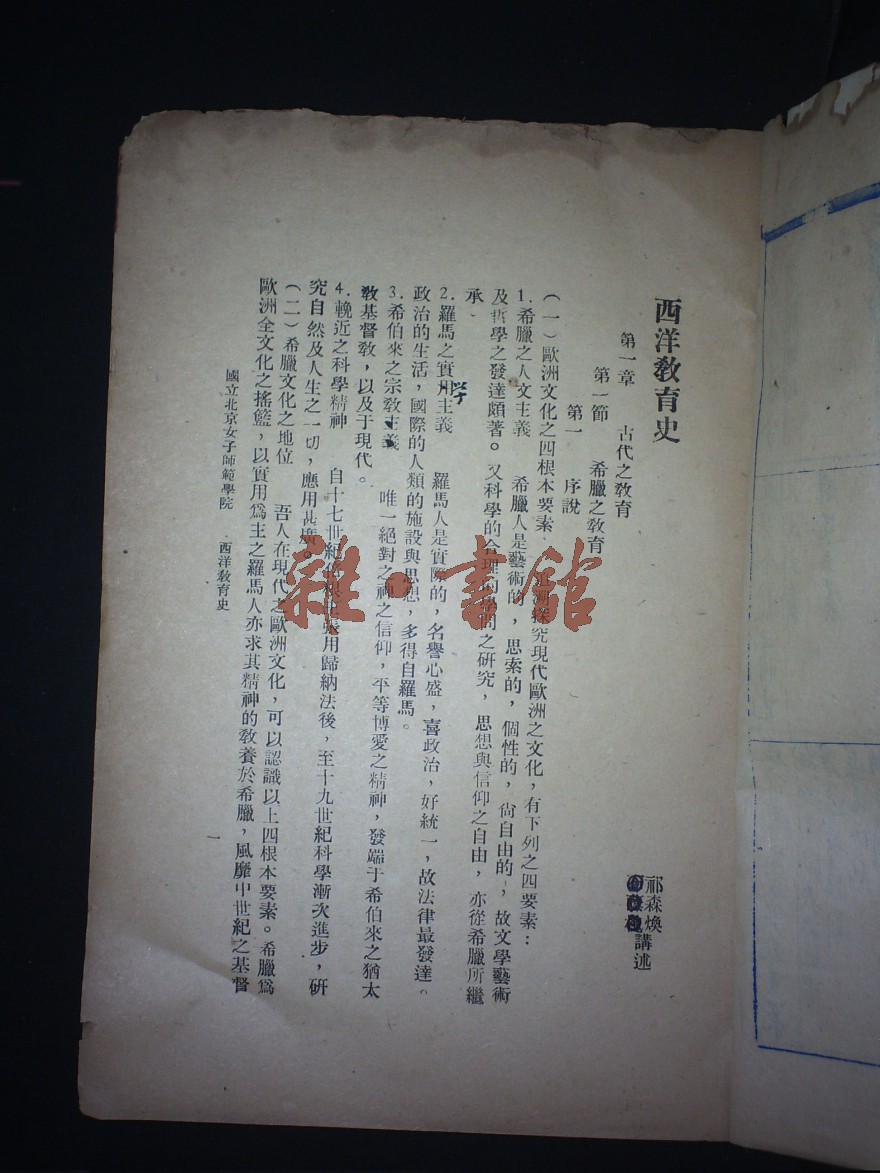 西洋教育史
祁森煥
講述
第一章 古代之教育
第一節 希臘之教育
第一 序說
(一)歐洲文化之四根本要素 探究現代歐洲之文化,有下列之四要素:
1.希臘之人文主義 希臘人是藝術的,思索的,個性的,尙自由的,故文學藝術
及哲學之發達頗著。又科學的合理的學問之研究,思想與信仰之自由,亦從希臘所繼
承、
2.羅馬之實用主義 羅馬人是實際的,名譽心盛,喜政治,好統一,故法律最發達。
学
政治的生活,國際的人類的施設與思想,多得自羅馬。
3.希伯來之宗教主義 唯一絕對之神之信仰,平等博愛之精神,發端于希伯來之猶太
教基督教,以及于現代。
4.輓近之科學精神 自十七世紀用歸納法後,至十九世紀科學漸次進步,研
究自然及人生之一切,應用甚廣。
(二)希臘文化之地位 吾人在現代之歐洲文化,可以認識以上四根本要素。希臘爲
歐洲全文化之搖籃,以實用爲主之羅馬人亦求其精神的教養於希臘,風靡中世紀之基督
國立北京女子師範學院 西洋教育史
一
雜·書館